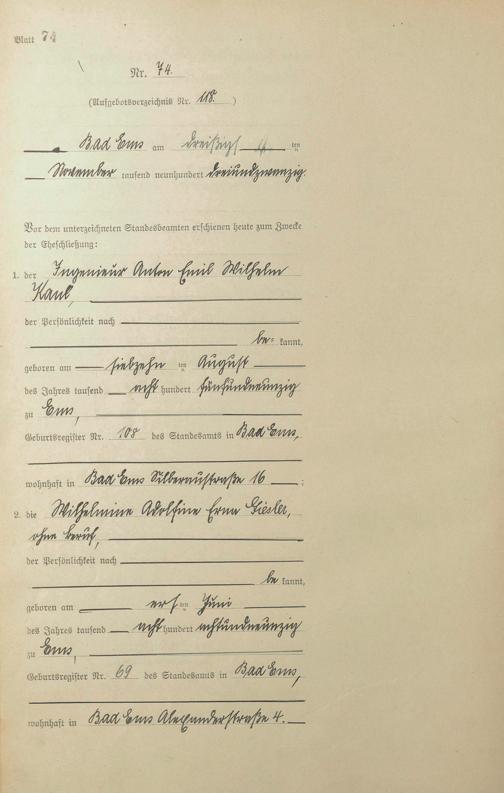 Blatt 74
Nr. 74.
(Aufgebotsverzeichnis Nr. 118.)
Bad Ems am dreißigsten
November tausend neunhundert dreiundzwanzig.
Vor dem unterzeichneten Standesbeamten erschienen heute zum Zwecke
der Eheschließung:
1. der Ingenieur Anton Emil Wilhelm
Kaul,
der Persönlichkeit nach
be= kannt,
geboren am siebzehn ten August
des Jahres tausend acht hundert fünfundneunzig
zu Ems,
Geburtsregister Nr. 108 des Standesamts in Bad Ems,
wohnhaft in Bad Ems Silberaustraße 16 ;
2. die Wilhelmine Adolfine Erna Giesler,
ohne Beruf,
der Persönlichkeit nach
be kannt,
geboren am ersten Juni
des Jahres tausend acht hundert achtundneunzig
zu Ems,
Geburtsregister Nr. 69 des Standesamts in Bad Ems,
wohnhaft in Bad Ems Alexanderstraße 4.